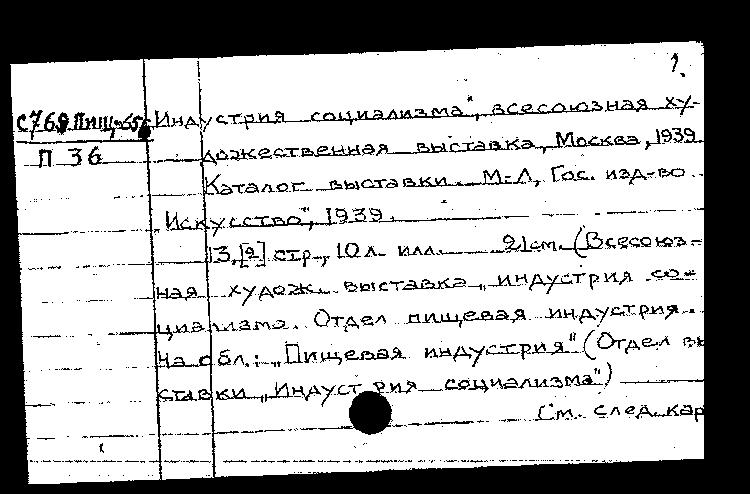 1.
С769 Пищ-55г Индустрия социализма", всесоюзная ху-
П 36 дожественная выставка, Москва, 1939.
Каталог выставки. М-Л, Гос. изд-во
„Искусство", 1939.
13,[2] стр., 10 л. илл. 21 см. (Всесоюз-
ная худож. выставка „индустрия со-
циализма. Отдел пищевая индустрия.
На обл.: „Пищевая индустрия" (Отдел вы
ставки „Индустрия социализма")
См. след. кар